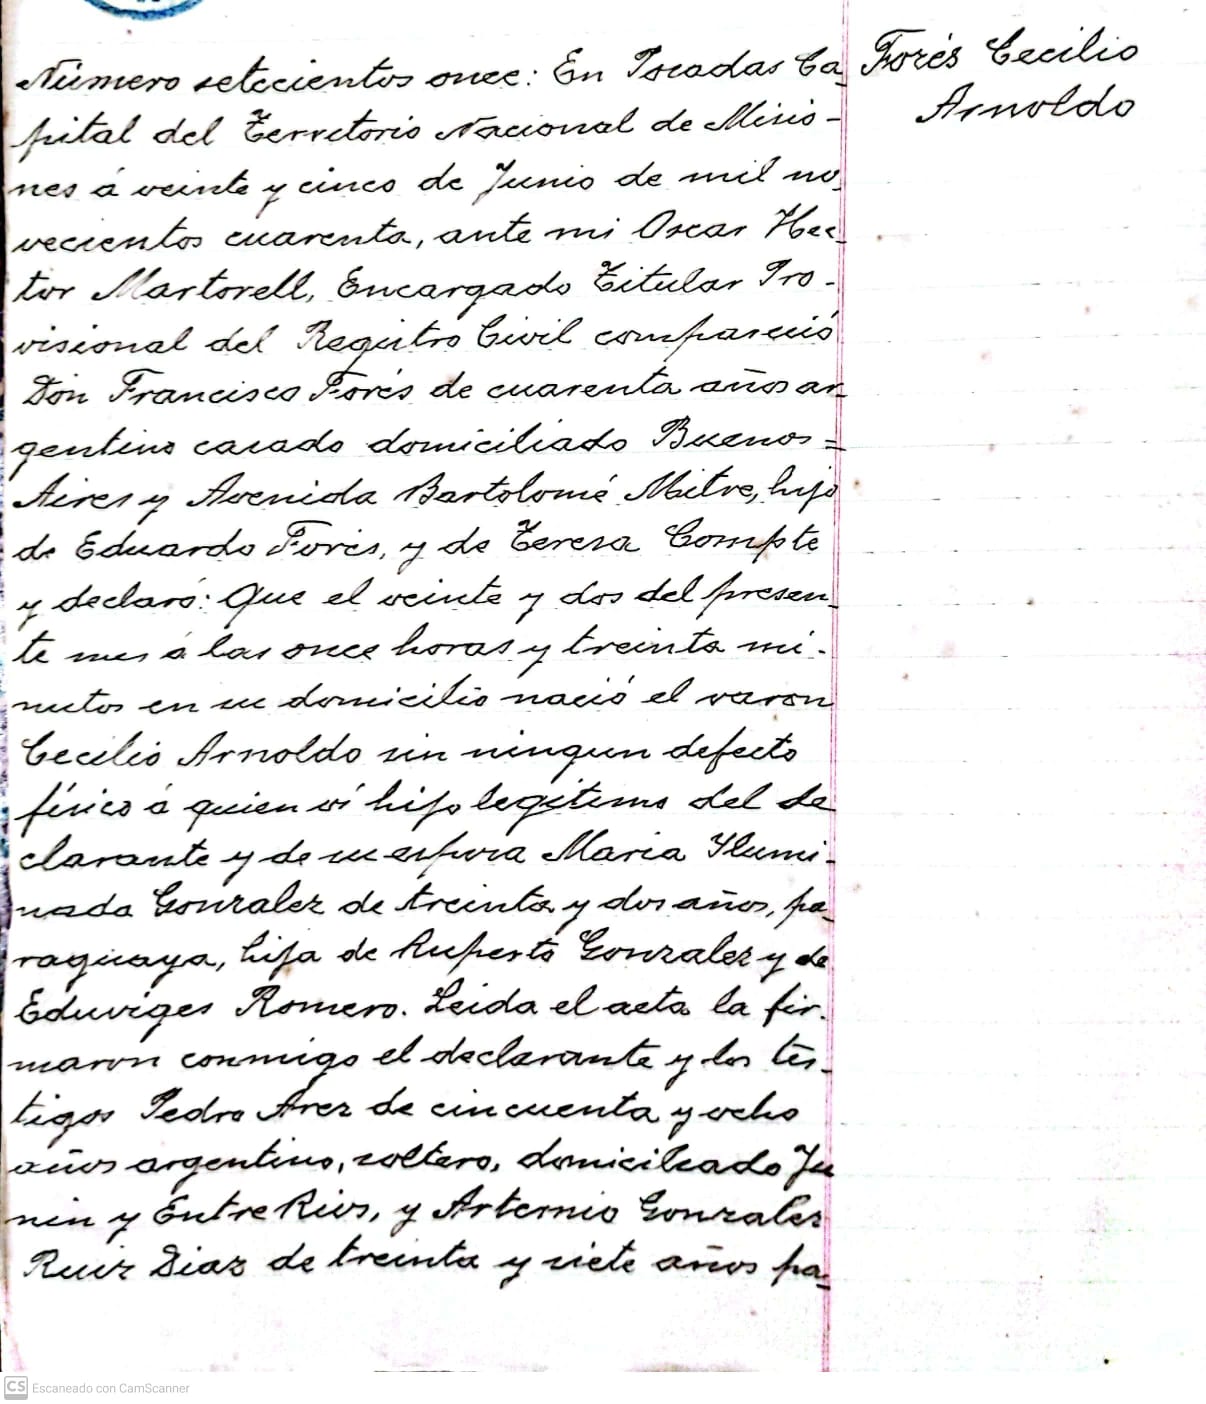 Número setecientos once: En Posadas Ca_
pital del Territorio Nacional de Misio-
nes á veinte y cinco de Junio de mil no_
vecientos cuarenta, ante mi Oscar Hec_
tor Martorell, Encargado Titular Pro-
visional del Registro Civil compareció
Dón Francisco Forés de cuarenta años ar_
gentino casado domiciliado Buenos=
Aires y Avenida Bartolomé Mitre, hijo
de Eduardo Forés, y de Teresa Compte
y declaró: Que el veinte y dos del presen_
te mes á las once horas y treinta mi-
nutos en su domicilio nació el varon
Cecilio Arnoldo sin ningun defecto
físico á quien ví hijo legítimo del de
clarante y de su esposa Maria Ilumi-
nada Gonzalez de treinta y dos años, pa_
raguaya, hija de Ruperto Gonzalez y de
Eduviges Romero. Leida el acta la fir-
maron conmigo el declarante y los tes_
tigos Pedro Arez de cincuenta y ocho
años argentino, soltero, domiciliado Ju
nin y Entre Rios, y Artemio Gonzalez
Ruiz Diaz de treinta y siete años pa_
Forés Cecilio
Arnoldo
CS Escaneado con CamScanner